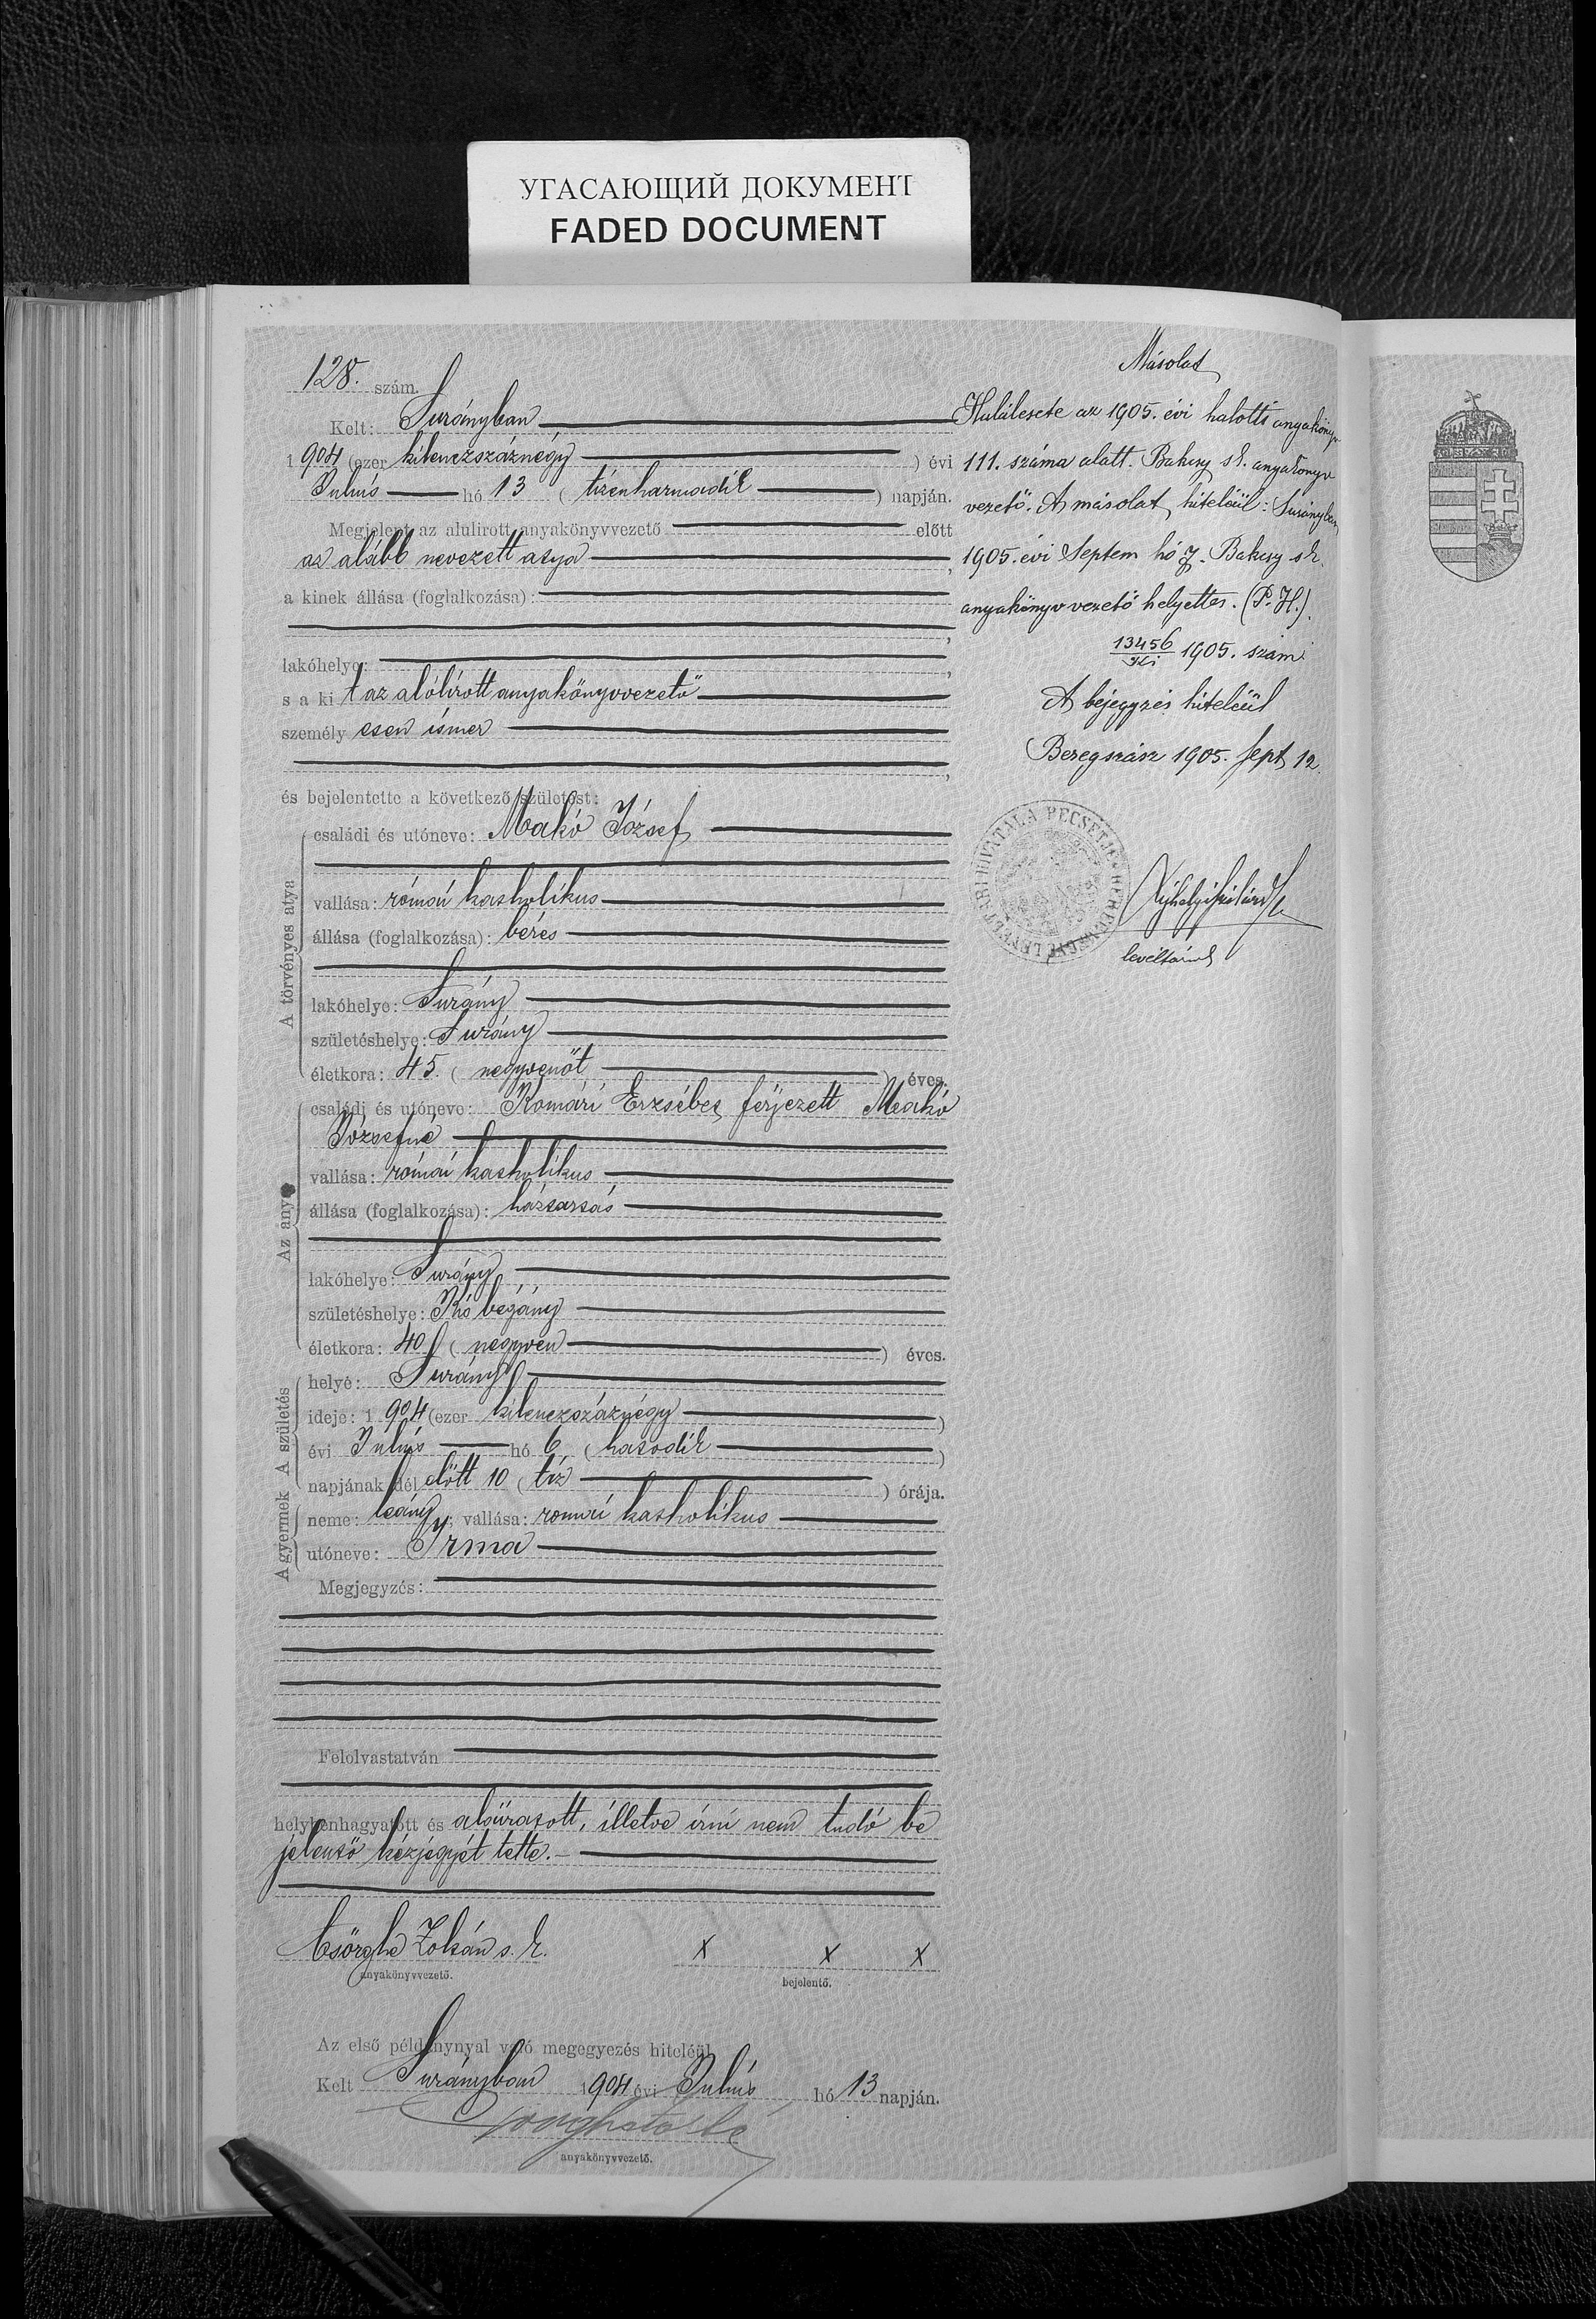 УГАСАЮЩИЙ ДОКУМЕНТ
FADED DOCUMENT
128. szám.
Kelt: Surányban
1904 (ezer kilenczszáznégy) évi
Julius hó 13 (tizenharmadik) napján.
Megjelent az alulirott anyakönyvvezető előtt
az alább nevezett atya,
a kinek állása (foglalkozása):
,
lakóhelye: ,
s a ki t az alólírott anyakönyvvezető
személy esen ismer
,
és bejelentette a következő születést:
A törvényes atya
családi és utóneve: Makó József
vallása: római katholikus
állása (foglalkozása): béres
lakóhelye: Surány
születéshelye: Surány
életkora: 45. (negyvenöt) éves.
Az anya
családi és utóneve: Komári Erzsébet férjezett Makó
Józsefné
vallása: római katholikus
állása (foglalkozása): háztartás
lakóhelye: Surány
születéshelye: Kis bégány
életkora: 40 (negyven) éves.
A születés
helye: Surány
ideje: 1904 (ezer kilenczszáznégy)
évi Julius hó 6 (hatodik)
napjának dél előtt 10 (tíz) órája.
A gyermek
neme: leány; vallása: romai katholikus
utóneve: Irma
Megjegyzés:
Felolvastatván
helybenhagyatott és aláiratott, illetve írni nem tudó be
jelentő kézjegyét tette.-
Csörghe Zoltán s. k.
anyakönyvvezető.
X X X
bejelentő.
Az első példánynyal való megegyezés hiteléül
Kelt Surányban 1904 évi Julius hó 13 napján.
anyakönyvvezető.
Másolat
Halálesete az 1905. évi halotti anyakönyv
111. száma alatt. Bakcsy sk. anyakönyv
vezető. A másolat hiteléül: Surányban
1905. évi Septem hó 7. Bakcsy sk.
anyakönyvvezető helyettes. (P. H.)
13456 1905. szám
A bejegyzés hiteléül
Beregszász 1905. sept 12.
levéltárnok